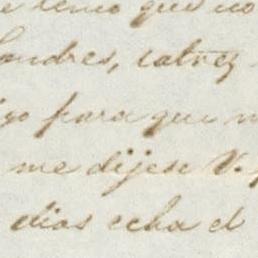 e temo que no
Londres, talvez
go para que
me dijese V.
dias echa el